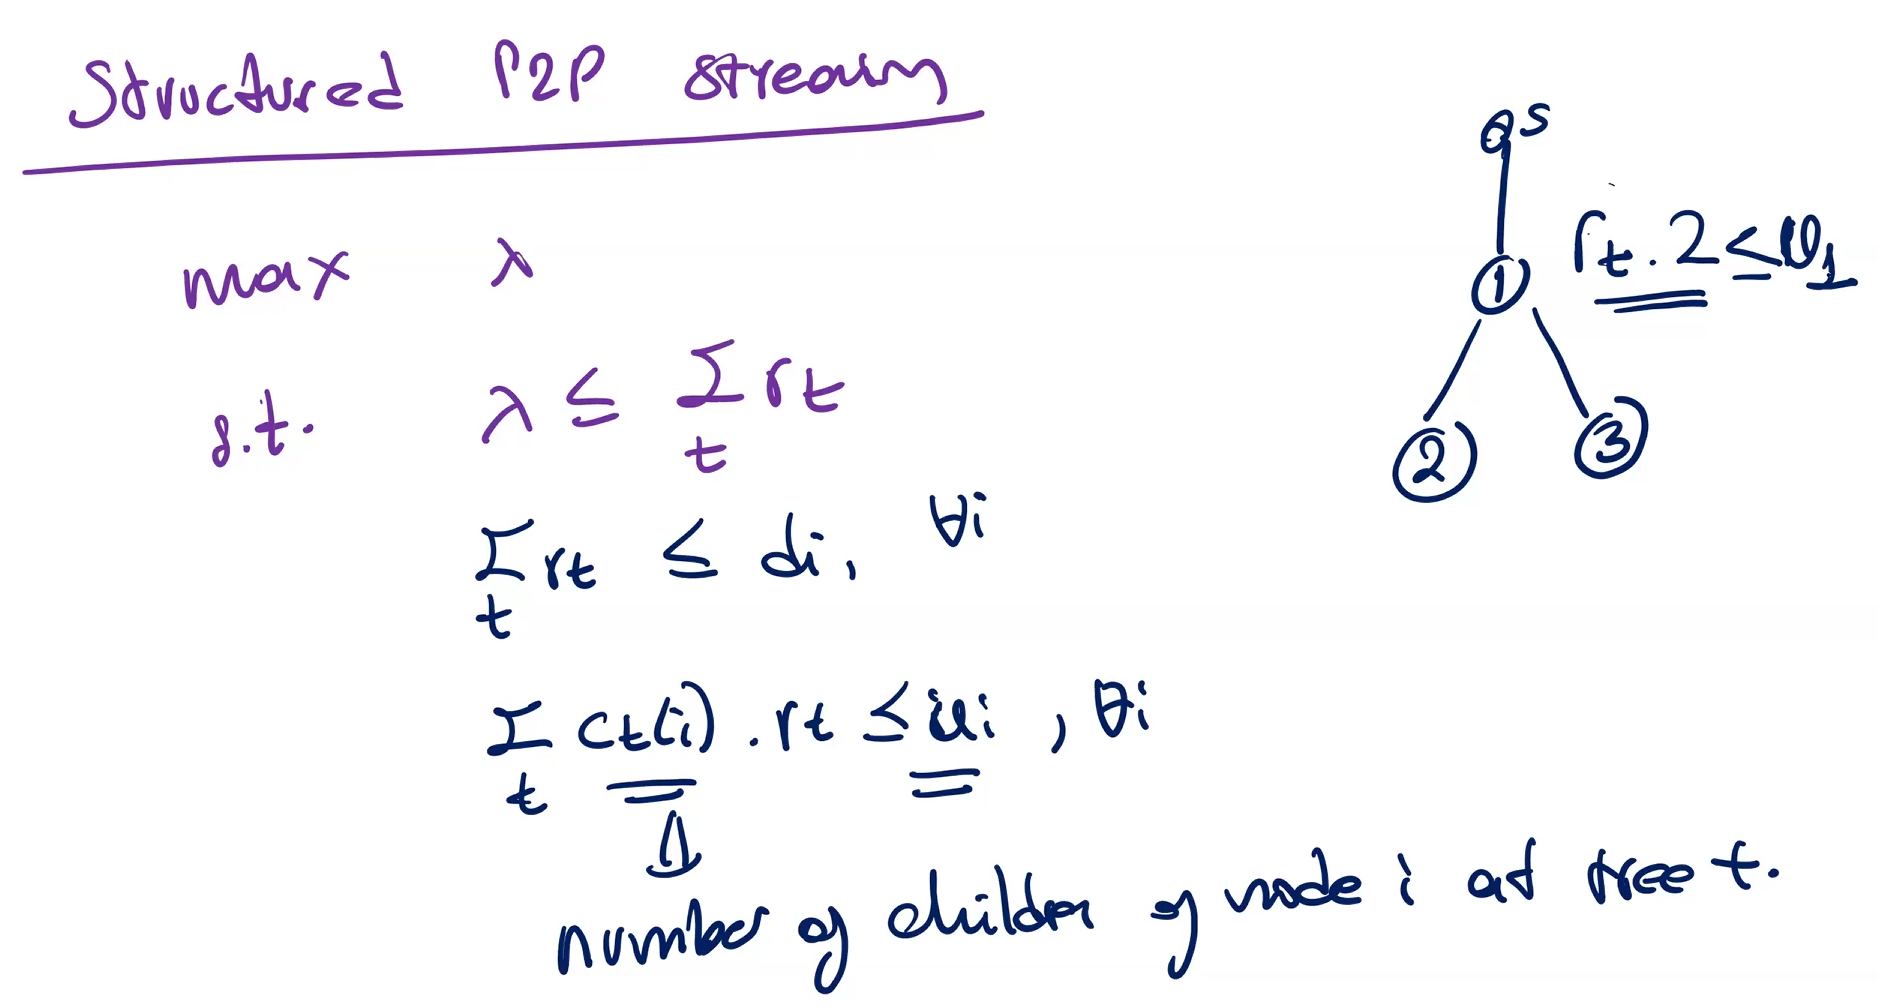 Structured P2P stream
max λ
s.t. λ ≤ Σ rt
t
Σ rt ≤ di, ∀i
t
Σ Ct(i) . rt ≤ ui , ∀i
t
number of children of node i at tree t.
S
1
rt . 2 ≤ U1
2
3